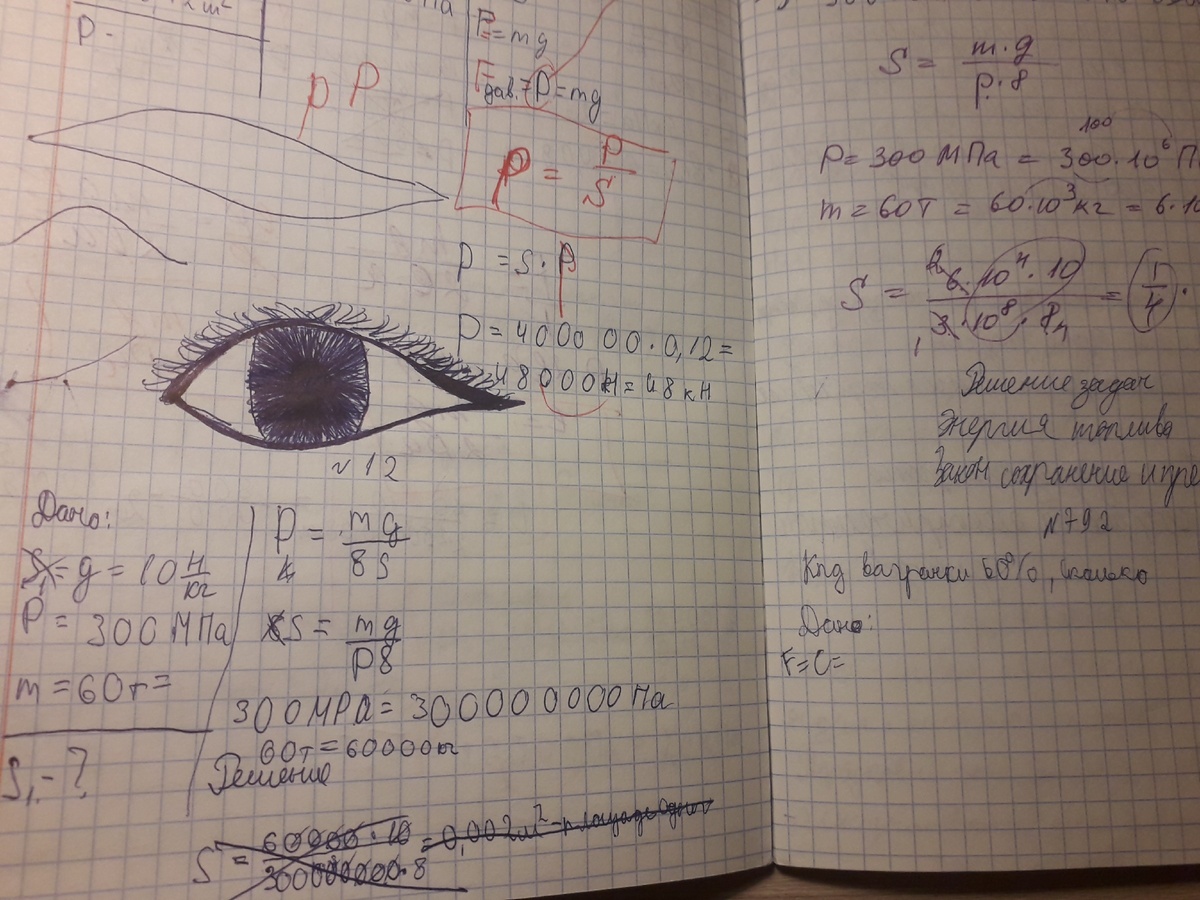 P -
F = mg
Fдав. = P = mg
p P
p = P/S
P = S · p
P = 4000 00 · 0,12 =
48000Н = 48 кН
№12
Дано:
g = 10 Н/кг
P = 300 МПа
m = 60т =
S₁ - ?
P = mg/8S
S = mg/P8
300 МРа = 300000000 Па
60т = 60000кг
Решение
S = 60000 · 10/300000000 · 8 = 0,002м² - площадь одного
S = m·g/p·8
P = 300 МПа = 300 · 10⁶ П
100
m = 60т = 60·10³ кг = 6·10
S = 6·10⁴·10/3·10⁸·8 = 1/4 ·
Решение задач
Энергия топлива
Закон сохранение и пре
№792
Кпд вагранки 60%, сколько
Дано: